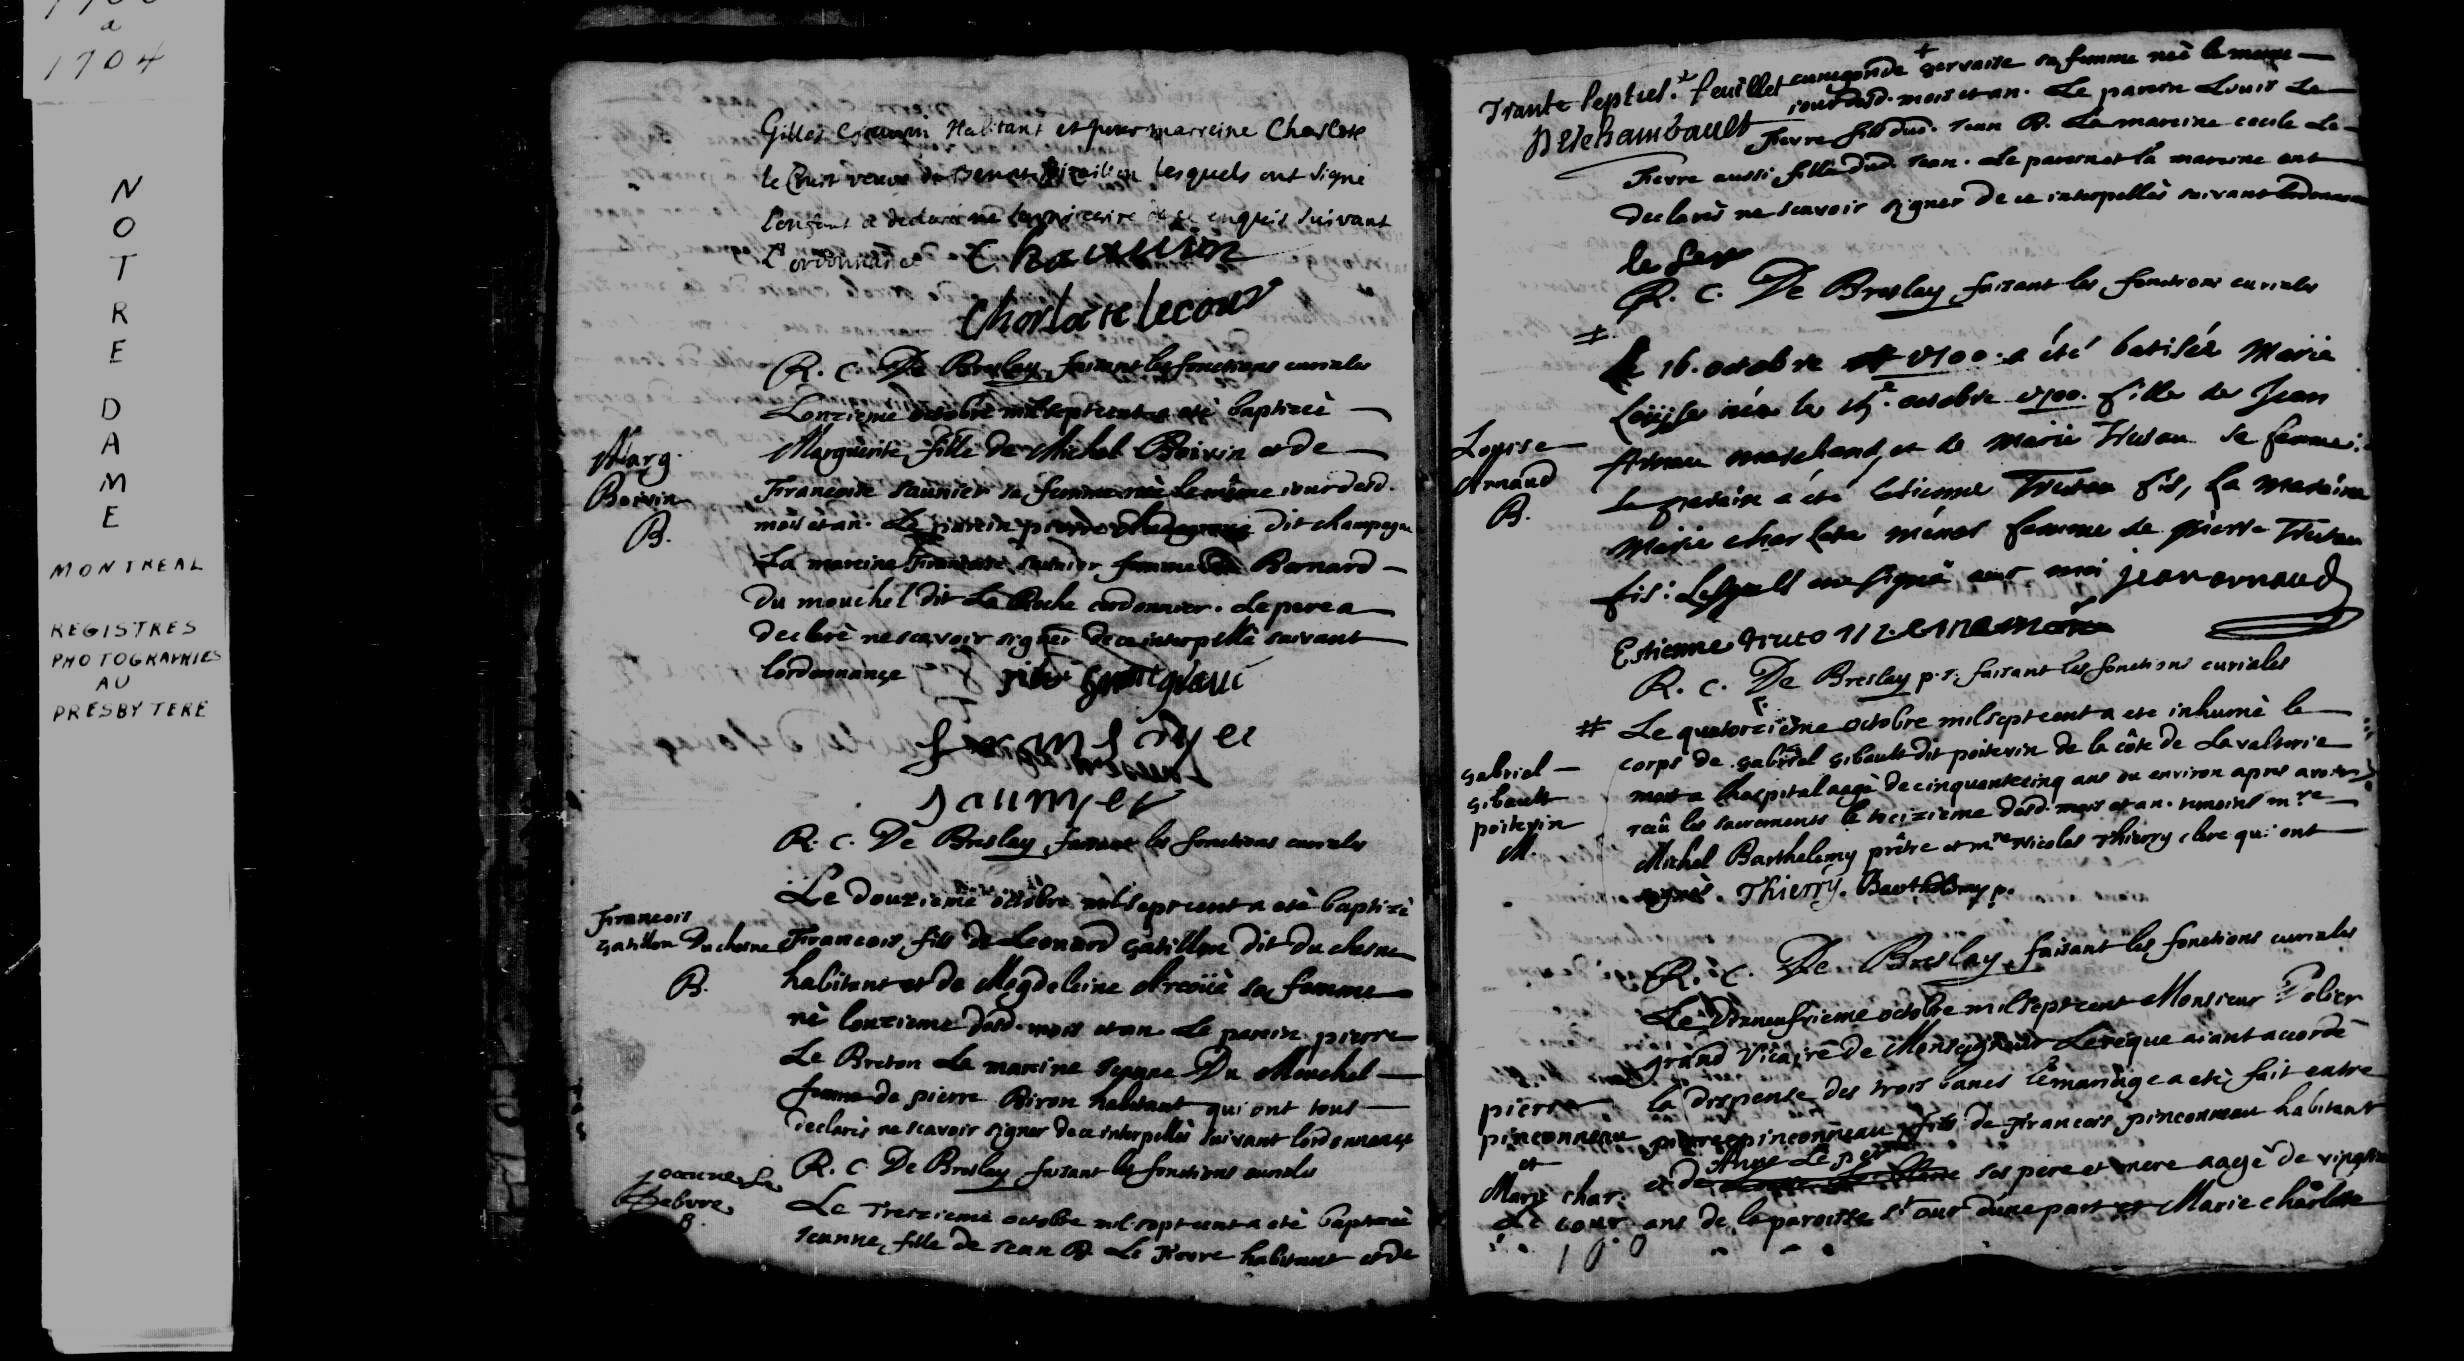 a
1704
NOTRE DAME
MONTREAL
REGISTRES
PHOTOGRAPHIES
AU
PRESBYTERE
Gilles Habitant et pour marreine Charlote
le veuve de lesquels ont signé
l'enfant a declaré ne suivant
l'ordonnance Chauvin
Charlote lecour
R. C. De Breslay faisant les fonctions curiales
Marg.
Boivin
B.
Lonzieme octobre mil sept cent a eté baptizée
Marguerite fille de Michel Boivin et de
Francoise Saunier sa femme née le même jour desd.
mois et an. Le parein pierre dit champagne
La mareine Francoise Saunier femme de Bernard
Du mouchel dit La Roche cordonnier. Le pere a
declaré ne scavoir signer de ce interpellé suivant
lordonnance
saumyer
R. C. De Breslay faisant les fonctions curiales
Francois
Gatillon Duchesne
B.
Le douzieme octobre mil sept cent a eté baptizé
Francois fils de Leonard Gatillon dit du chesne
habitant et de Magdeleine sa femme
né lonzieme desd. mois et an. Le parein pierre
Le Breton La mareine Jeanne Du Mouchel
femme de pierre Biron habitant qui ont tous
declarés ne scavoir signer de ce interpellés suivant lordonnance
R. C. De Breslay faisant les fonctions curiales
Jeanne Le
Febvre
B.
Le Treizieme octobre mil sept cent a eté baptizée
Jeanne fille de Jean B. Le Fievre habitant et de
Trante septies. feuillet
Deschambault
cunegonde gervaise sa femme née le mesme
jour desd. mois et an. Le parein Louis Le
Fievre fils dud. Jean B. La mareine cecile Le
Fievre aussi fille dud. Jean. Le parein et la mareine ont
declarés ne scavoir signer de ce interpellés suivant lordonnance
R. C. De Breslay faisant les fonctions curiales
Loyise
Arnaud
B.
Le 16. octobre 1700. a été batisée Marie
Loüise née le octobre 1700. fille de Jean
Arnau marchand, et de Marie Truteau sa femme:
Le parain a été Estienne Truteau fis, La maraine
Marie charlote ménar femme de pierre Truteau
fis: Lesquels ont signé avec moi jean arnaud
Estienne truto
R. C. De Breslay p. faisant les fonctions curiales
Gabriel
Gibault
poitevin
M.
# Le quatorzième octobre mil sept cent a eté inhumé le
corps de Gabriel Gibault dit poitevin de la côte de Lavaltrie
mort a lhospital aagé de cinquante cinq ans ou environ apres avoir
receû les sacremens le treizieme desd. mois et an. temoins mre
Michel Barthelemy prêtre et mre Nicolas Thierry clerc qui ont
signés. Thierry. Barthelemy p.
R. C. De Breslay faisant les fonctions curiales
pierre
pinconneau
et
Marie char.
Le cour
Le Dixneufvieme octobre mil sept cent Monsieur Dolier
grand Vicaire de Monseigneur Leveque aiant accordé
la dispense des trois bancs le mariage a eté fait entre
pierre pinconneau fils de Francois pinconneau habitant
et de Anne Leper ses pere et mere aagé de vingt
ans de la paroisse d'une part et Marie charlote